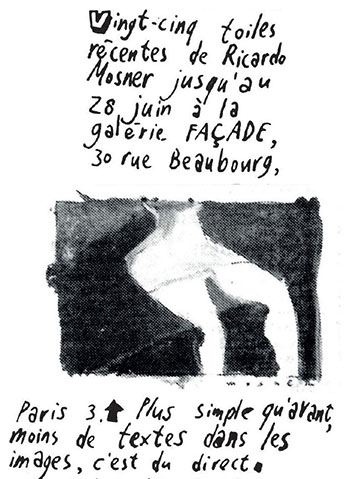 Vingt-cinq toiles
récentes de Ricardo
Mosner jusqu'au
28 juin à la
galerie FAÇADE,
30 rue Beaubourg,
mosner
Paris 3. Plus simple qu'avant,
moins de textes dans les
images, c'est du direct.